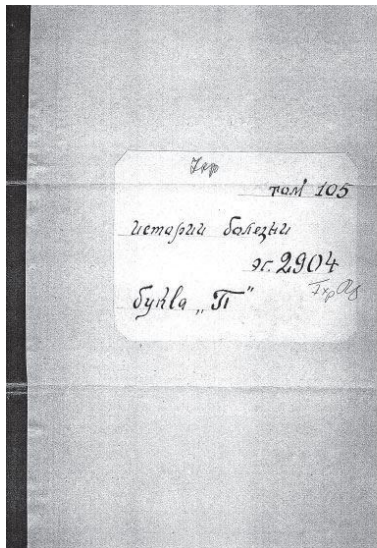 том 105
истории болезни
эг. 2904
буква „П"